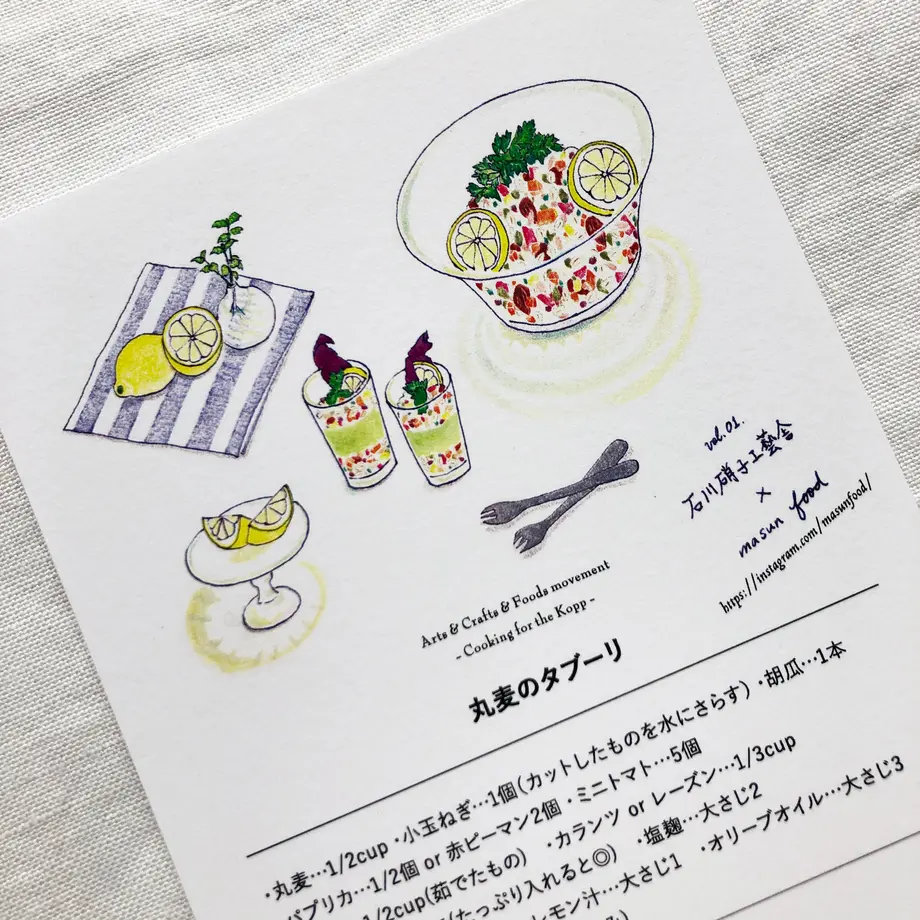 vol.01.
石川硝子工藝舎
×
masun food
https://instagram.com/masunfood/
Arts & Crafts & Foods movement
- Cooking for the Kopp -
丸麦のタブーリ
・丸麦…1/2cup ・小玉ねぎ…1個(カットしたものを水にさらす) ・胡瓜…1本
パプリカ…1/2個 or 赤ピーマン2個 ・ミニトマト…5個
1/2cup(茹でたもの) ・カランツ or レーズン…1/3cup
(たっぷり入れると◎) ・塩麹…大さじ2
レモン汁…大さじ1 ・オリーブオイル…大さじ3